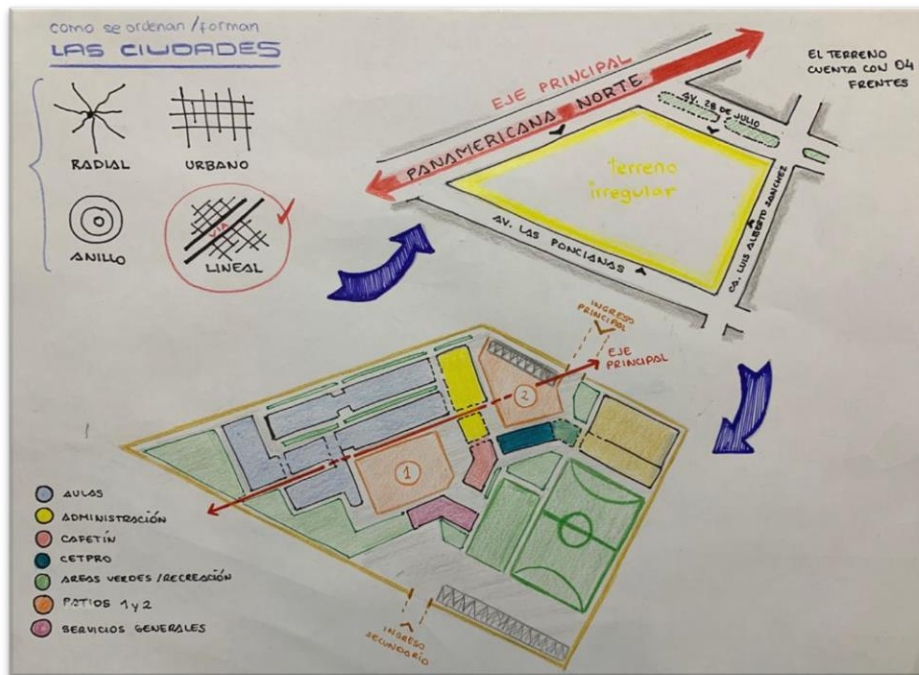 como se ordenan/forman
LAS CIUDADES
RADIAL
URBANO
ANILLO
VIA
LINEAL
EJE PRINCIPAL
PANAMERICANA NORTE
AV. 28 DE JULIO
EL TERRENO
CUENTA CON 04
FRENTES
terreno
irregular
AV. LAS PONCIANAS
CA. LUIS ALBERTO SANCHEZ
INGRESO
PRINCIPAL
EJE
PRINCIPAL
2
1
AULAS
ADMINISTRACIÓN
CAFETÍN
CETPRO
AREAS VERDES/RECREACIÓN
PATIOS 1 y 2
SERVICIOS GENERALES
INGRESO
SECUNDARIO